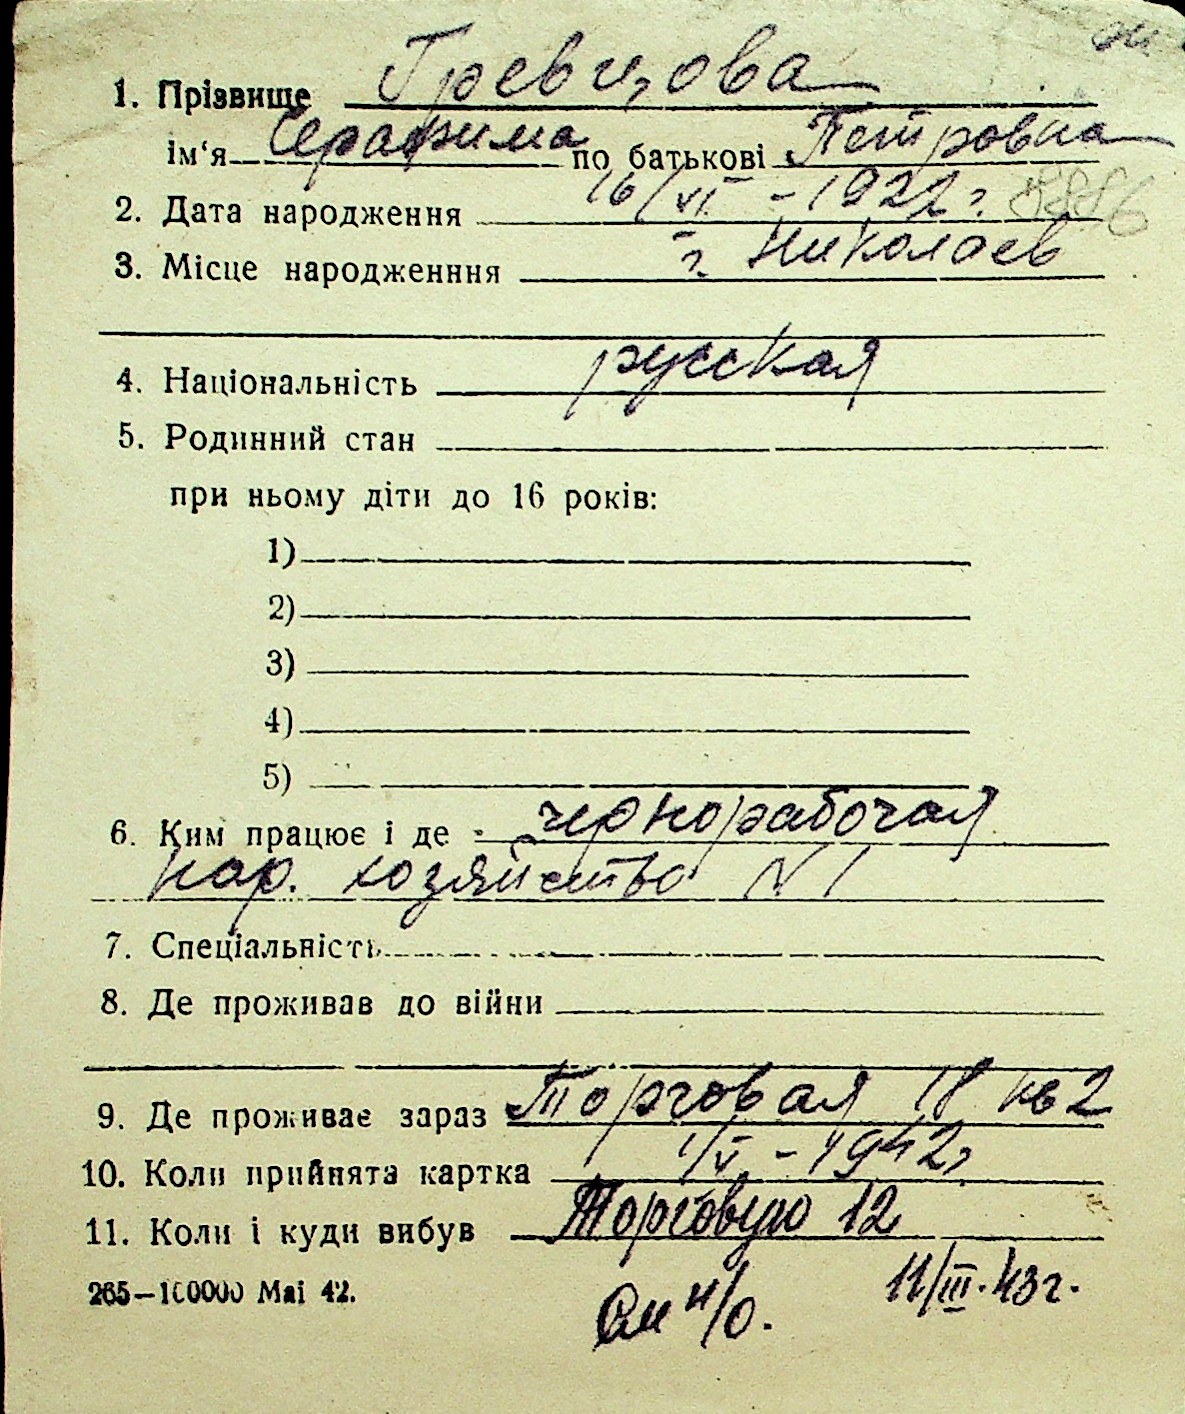 1. Прізвище Гревцова
ім‘я Серафима по батькові Петровна
2. Дата народження 16/VI – 1922 г.
3. Місце народженння г. Николаев
4. Національність русская
5. Родинний стан
при ньому діти до 16 років:
1)
2)
3)
4)
5)
6. Ким працює і де чернорабочая
нар. хозяйство N 1
7. Спеціальність
8. Де проживав до війни
9. Де проживає зараз Торговая 18 кв 2
10. Коли прийнята картка 1/V – 1942 г.
11. Коли і куди вибув Торговую 12
265—100000 Mai 42. См н/о. 11/III. 43 г.